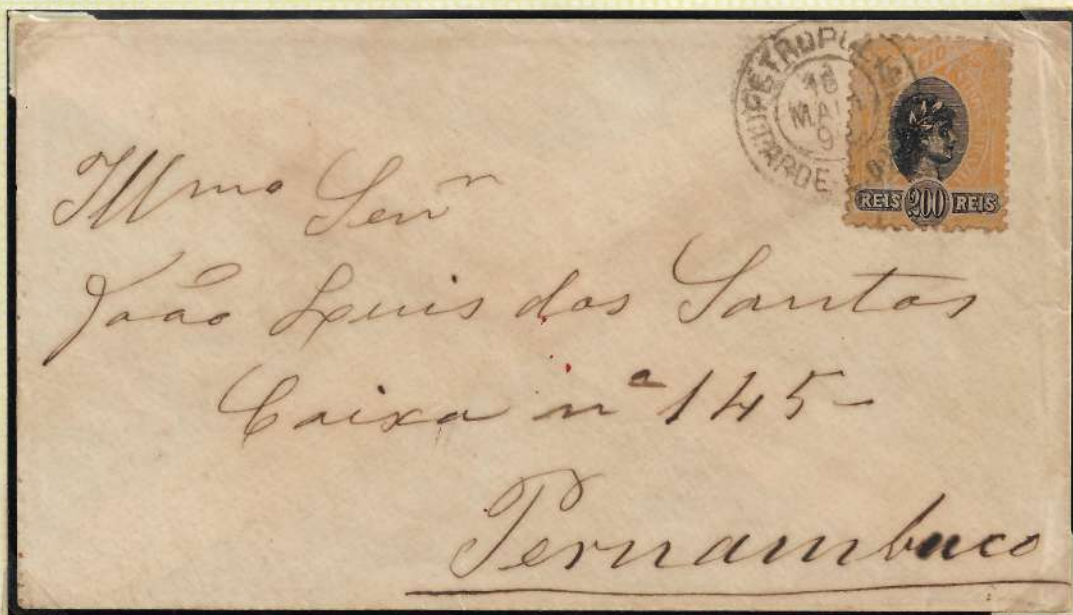 PETROPOLIS
16
MAI
9
TARDE
REIS 200 REIS
Illmo Senr
João Luis dos Santos
Caixa nº 145-
Pernambuco